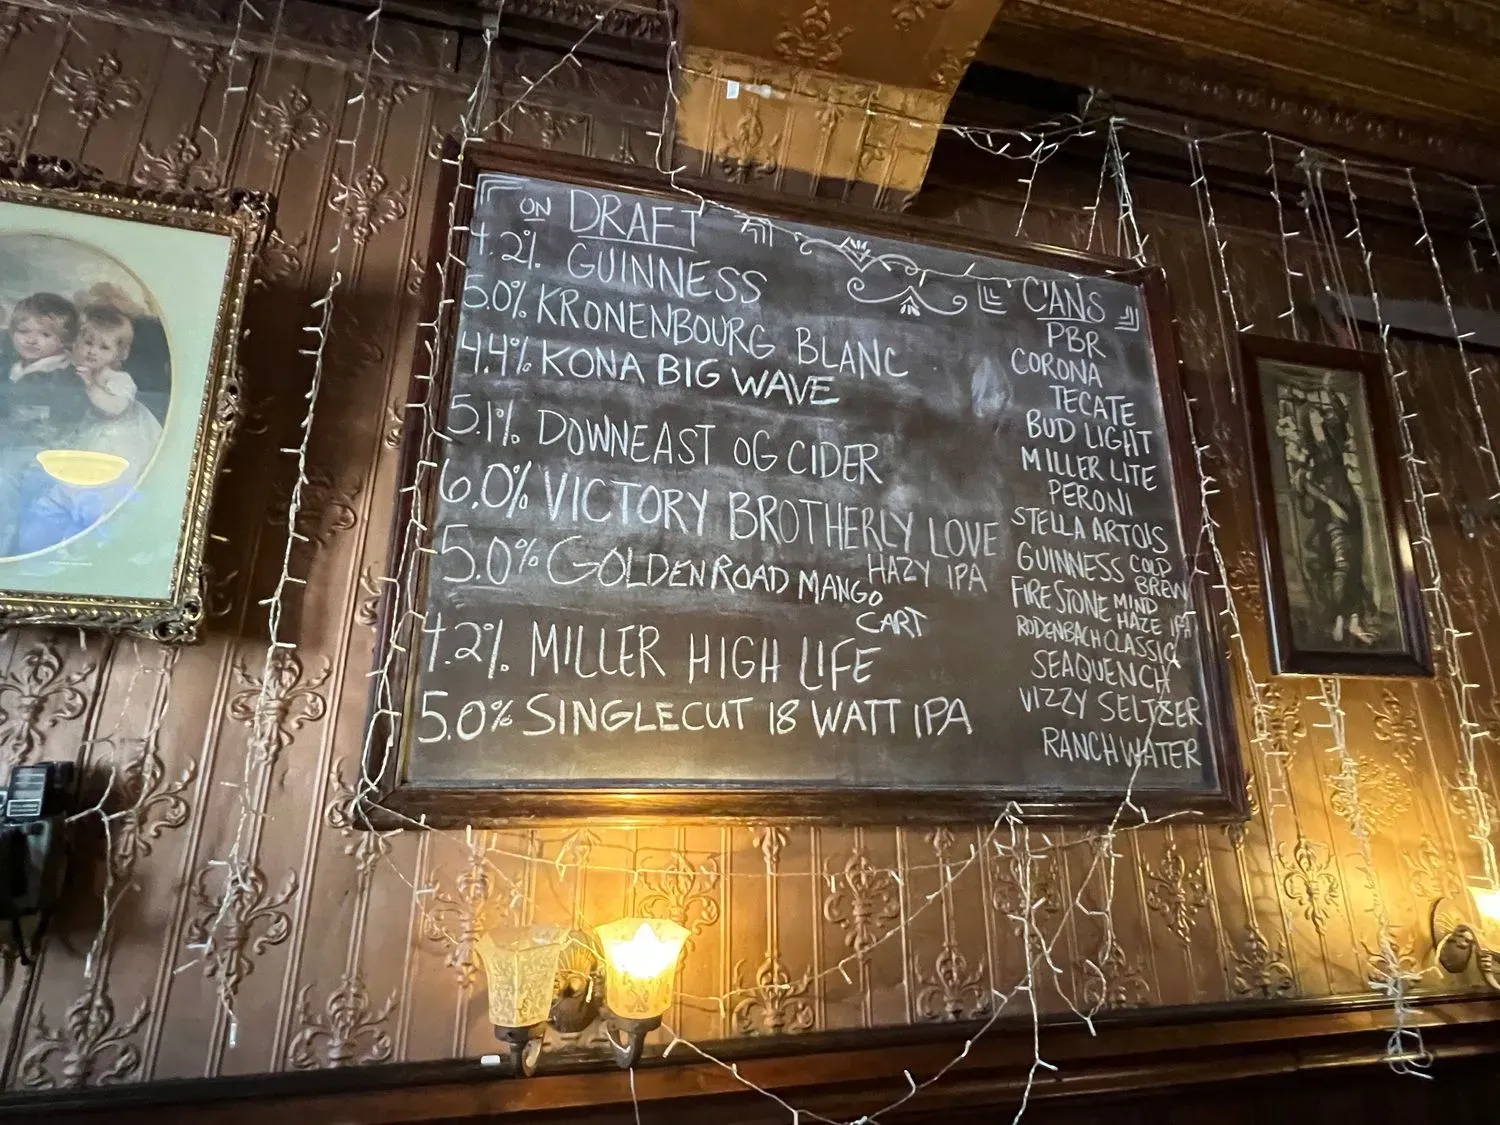 ON DRAFT
4.2% GUINNESS
5.0% KRONENBOURG BLANC
4.4% KONA BIG WAVE
5.1% DOWNEAST OG CIDER
6.0% VICTORY BROTHERLY LOVE
HAZY IPA
5.0% GOLDEN ROAD MANGO
CART
4.2% MILLER HIGH LIFE
5.0% SINGLECUT 18 WATT IPA
CANS
PBR
CORONA
TECATE
BUD LIGHT
MILLER LITE
PERONI
STELLA ARTOIS
GUINNESS COLD
BREW
FIRESTONE MIND
HAZE IPA
RODENBACH CLASSIC
SEAQUENCH
VIZZY SELTZER
RANCH WATER